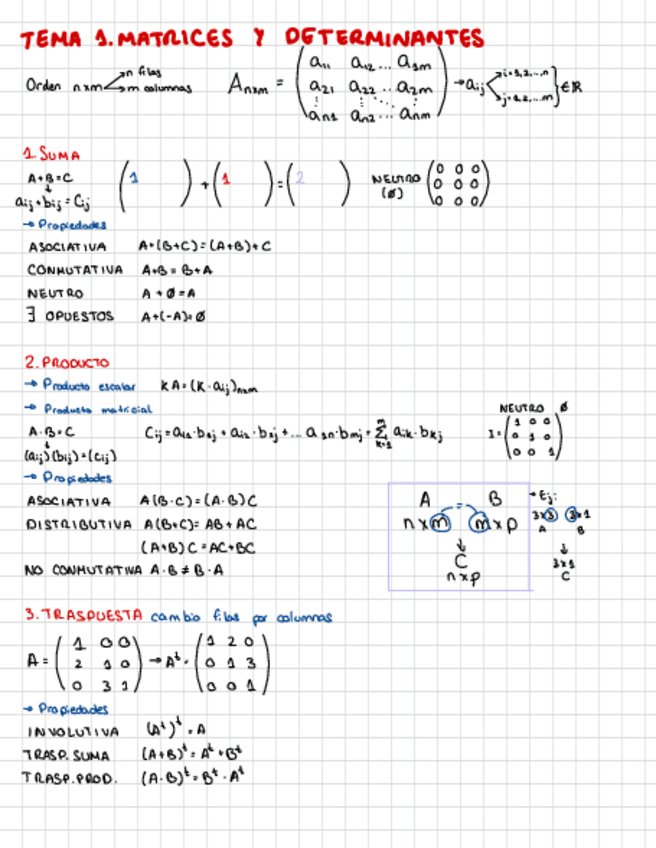 TEMA 1. MATRICES Y DETERMINANTES
Orden nxm n filas m columnas
Anxm = ( a11 a12 ... a1m
a21 a22 ... a2m
an1 an2 ... anm ) → aij i=1,2,...,n j=1,2,...m ∈ R
1. SUMA
A+B=C
↓
aij+bij=Cij
( 1 ) + ( 1 ) = ( 2 )
NEUTRO (Ø) ( 0 0 0
0 0 0
0 0 0 )
→ Propiedades
ASOCIATIVA A+(B+C)=(A+B)+C
CONMUTATIVA A+B=B+A
NEUTRO A+Ø=A
∃ OPUESTOS A+(-A)=Ø
2. PRODUCTO
→ Producto escalar KA=(K·aij)nxm
→ Producto matricial
A·B=C
↓
(aij)(bij)=(cij)
NEUTRO Ø
I = ( 1 0 0
0 1 0
0 0 1 )
→ Propiedades
ASOCIATIVA A(B·C)=(A·B)C
DISTRIBUTIVA A(B+C)=AB+AC
(A+B)C=AC+BC
NO CONMUTATIVA A·B≠B·A
A B
nxm mxp
↓
C
nxp
→ Ej:
3x3 3x1
A B
↓
3x1
C
3. TRASPUESTA cambio filas por columnas
A = ( 1 0 0
2 1 0
0 3 1 ) → At = ( 1 2 0
0 1 3
0 0 1 )
→ Propiedades
INVOLUTIVA (At)t=A
TRASP. SUMA (A+B)t=At+Bt
TRASP. PROD. (A·B)t=Bt·At